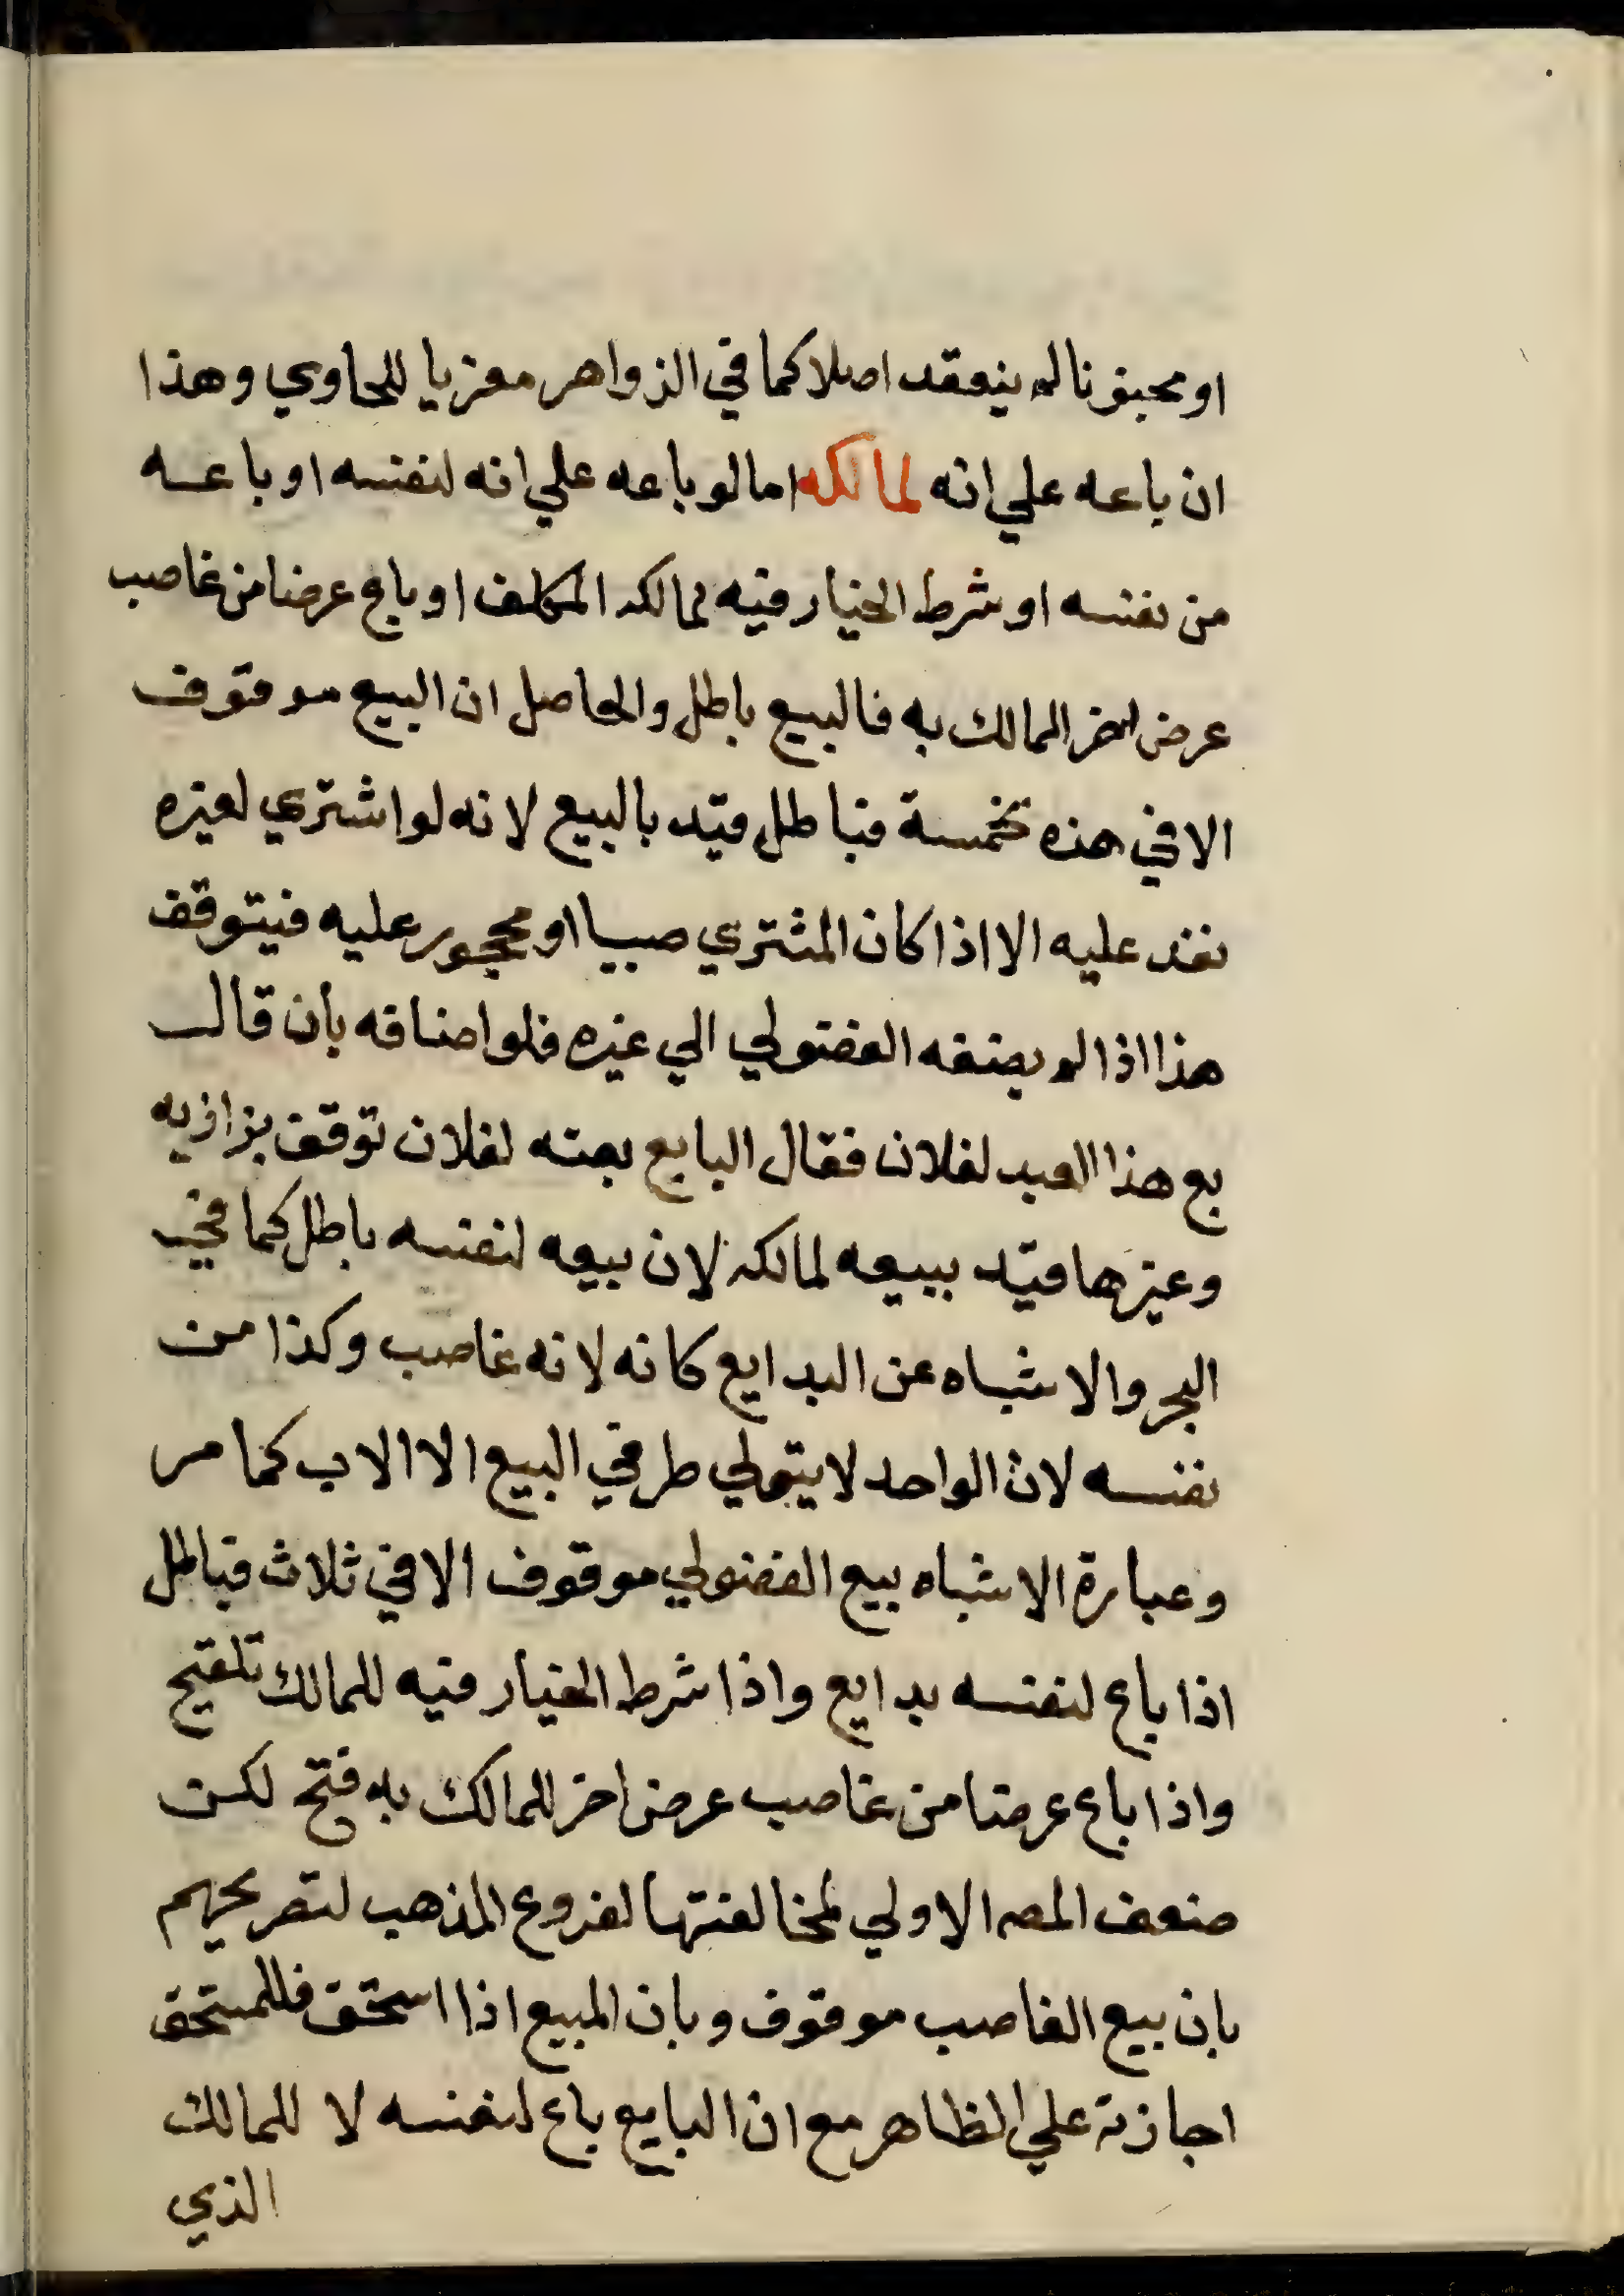 او مجنونا لم ينعقد اصلا كما في الزواهر معزيا للحاوي وهذا
ان باعه علي انه لمالكه اما لو باعه علي انه لنفسه او باعه
من نفسه او شرط الخيار فيه لمالكه المكلف او باع عرضا من غاصب
عرض اخر المالك به فالبيع باطل والحاصل ان البيع موقوف
الا في هذه خمسة فباطل قيد بالبيع لانه لو اشتري لغيره
نفذ عليه الا اذا كان المشتري صبيا او محجور عليه فيتوقف
هذا اذا لم يضفه الفضولي الي غيره فلو اضافه بان قال
بع هذا العبد لفلان فقال البايع بعته لفلان توقف بزازيه
وغيرها قيد ببيعه لمالكه لان بيعه لنفسه باطل كما في
البحر والاشباه عن البدايع كانه لانه غاصب وكذا من
نفسه لان الواحد لا يتولي طرفي البيع الا الاب كما مر
وعبارة الاشباه بيع الفضولي موقوف الا في ثلاث فباطل
اذا باع لنفسه بدايع واذا شرط الخيار فيه للمالك تلقيح
واذا باع عرضا من غاصب عرض اخر للمالك به فتح لكن
ضعف المصه الاولي لمخالفتها لفروع المذهب لتصريحهم
بان بيع الغاصب موقوف وبان المبيع اذا استحق فللمستحق
اجازته علي الظاهر مع ان البايع باع لنفسه لا للمالك
الذي